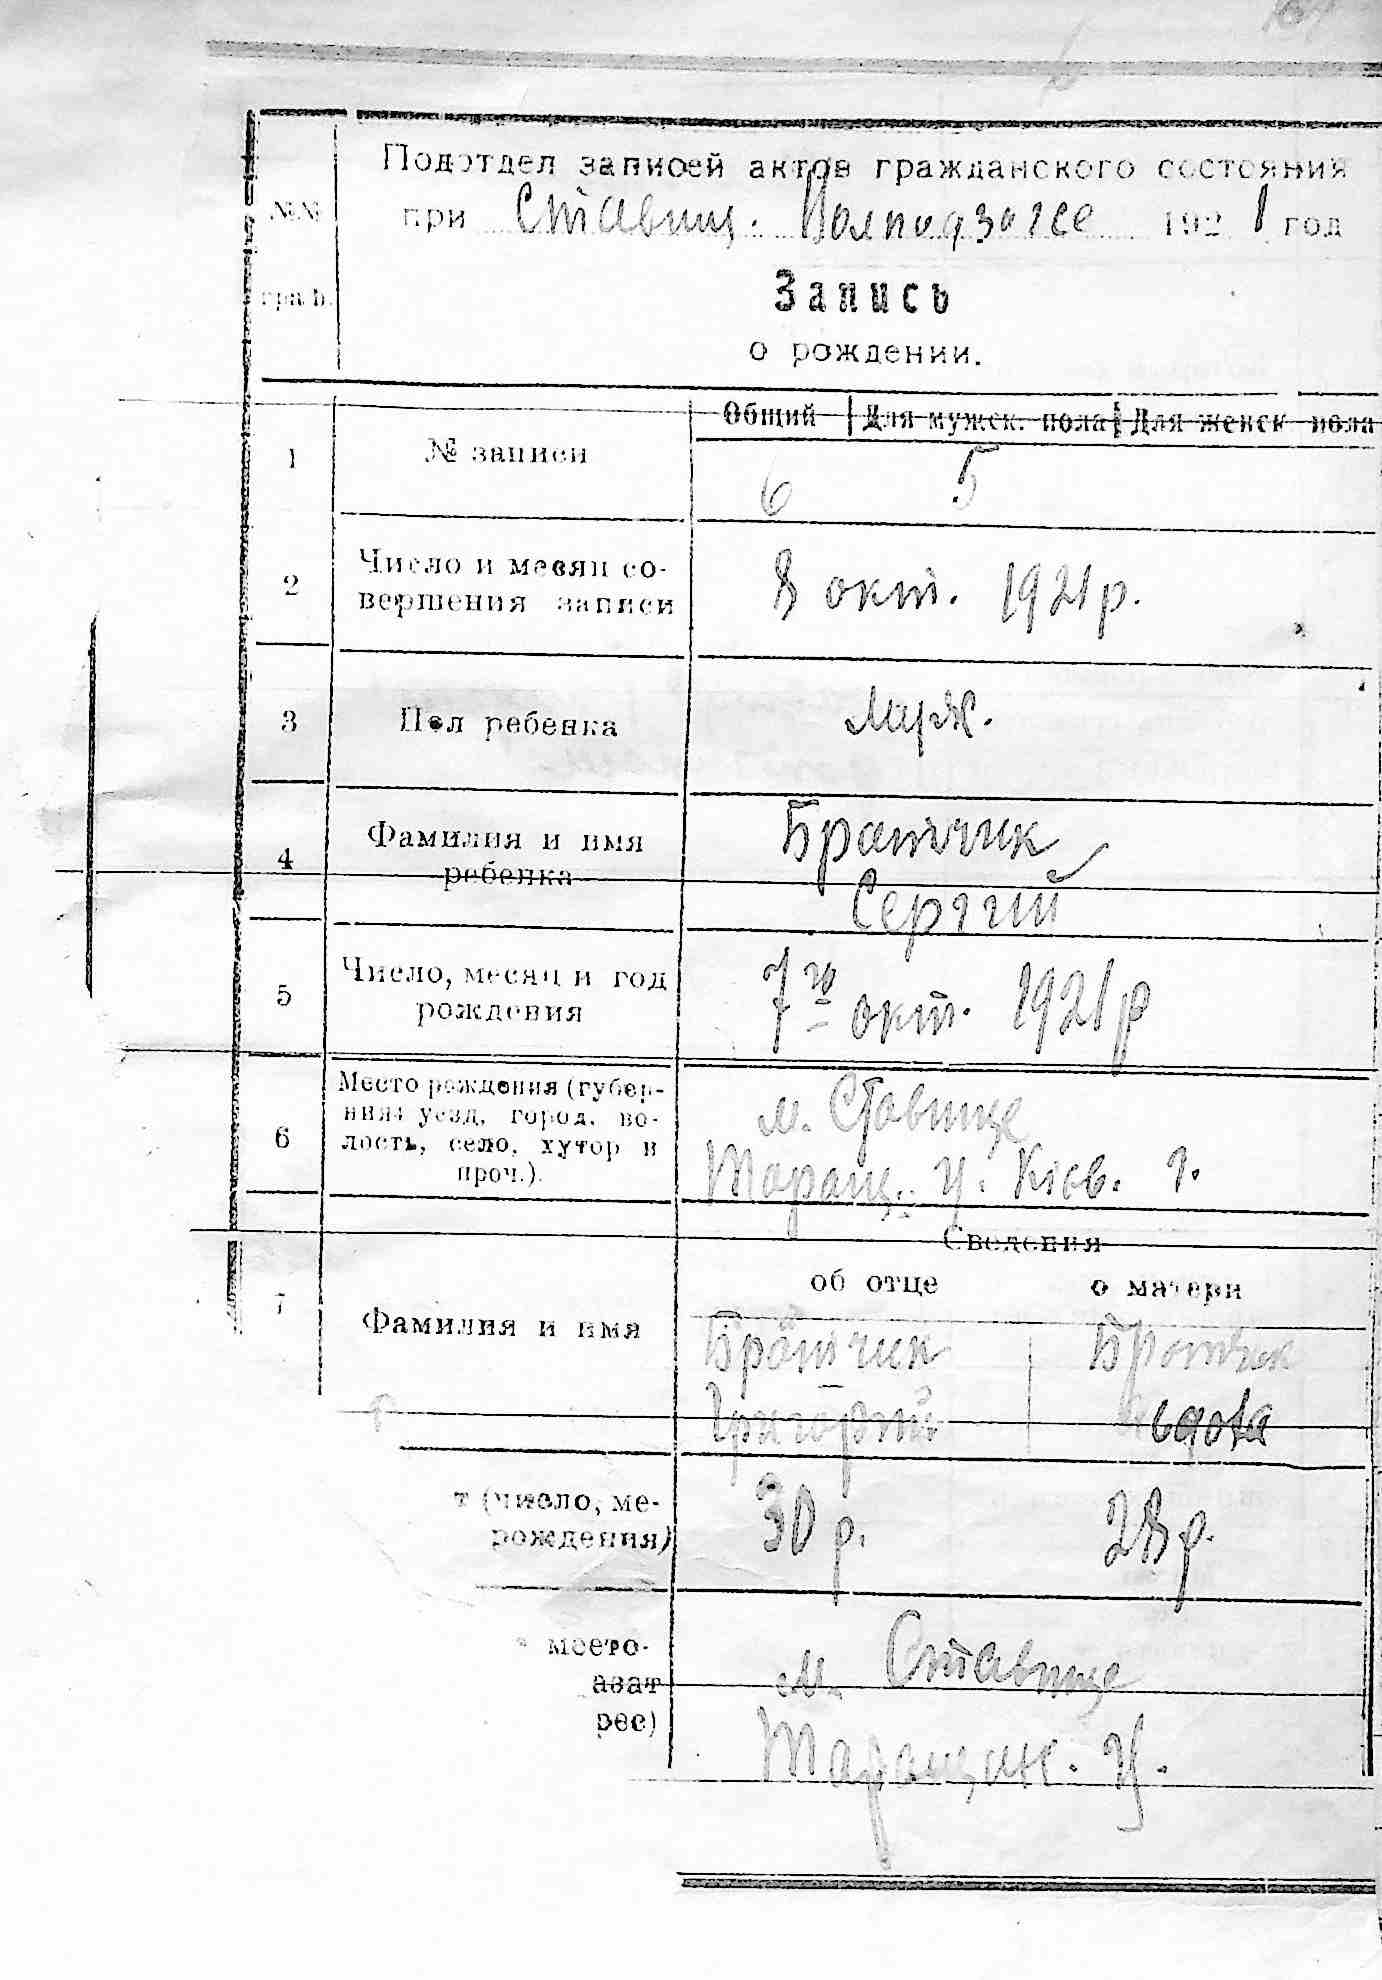 Подотдел записей актов гражданского состояния
при Ставищ. Волподзагсе 1921 год
№№
граф.
Запись
о рождении.
Общий Для мужск. пола Для женск пола
1 № записи
6 5
2 Число и месяц совершения записи
8 окт. 1921 р.
3 Пол ребенка
муж.
4 Фамилия и имя
ребенка
Братчик
Сергий
5 Число, месяц и год
рождения
7го окт. 1921 р
6 Место рождения (губер-
ния: уезд, город, во-
лость, село, хутор и
проч.).
м. Ставище
Таращ. у. Киев. г.
Сведения
об отце о матери
7 Фамилия и имя
Братчик Братчик
Григорий
т (число, ме-
рождения)
30 р. 28 р.
место-
азат
рес)
м. Ставище
Таращан. у.